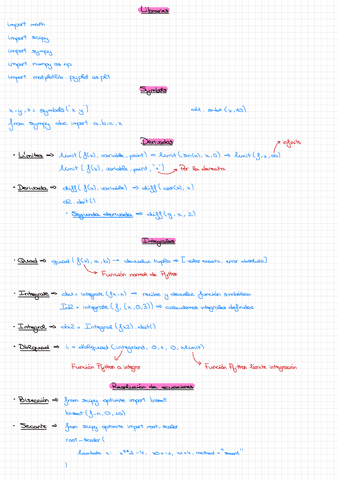 Librerías
import math
import scipy
import sympy
import numpy as np
import matplotlib.pyplot as plt
Symbols
x,y,z = symbols('x y')
from sympy.abc import a,b,c,x
Derivadas
infinito
• Límites ⇒ limit(f(x), variable, point) ⇒ limit(sin(x), x, 0) ⇒ limit(f, x, oo)
limit (f(x), variable, point, '+') → Por la derecha
• Derivada ⇒ diff(f(x), variable) ⇒ diff(cos(x), x)
d2.doit()
• Segunda derivada ⇒ diff(g, x, 2)
Integrales
• Quad ⇒ quad(f(x), a, b) → devuelve tupla ⇒ [valor exacto, error absoluto]
Función normal de Python
• Integrate ⇒ idx1 = integrate(fx, x) → recibe y devuelve función simbólica
Id2 = integrate(f, (x, 0, 3)) ⇒ calculamos integrales definidas
• Integral ⇒ idx2 = Integral(fx2).doit()
• Dblquad ⇒ i = dblquad(integrand, 0, 2, 0, xlimit)
Función Python a integrar
Función Python límite integración
Resolución de ecuaciones
• Bisección ⇒ from scipy.optimize import bisect
• Secante ⇒ from scipy.optimize import root_scalar
root_scalar(
lambda x: x**2-4, x0=1, x1=4, method="secant"
)